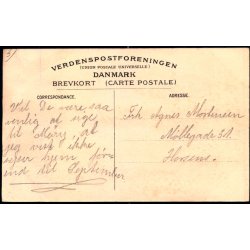 VERDENSPOSTFORENINGEN
(UNION POSTALE UNIVERSELLE)
DANMARK
BREVKORT (CARTE POSTALE)
CORRESPONDANCE.
ADRESSE.
Vil De være saa
venlig at sige
til Mary, at
jeg vist ikke
rejser hjem før
ind til September
Frk Agnes Mortensen
Möllegade 31.
Horsens.